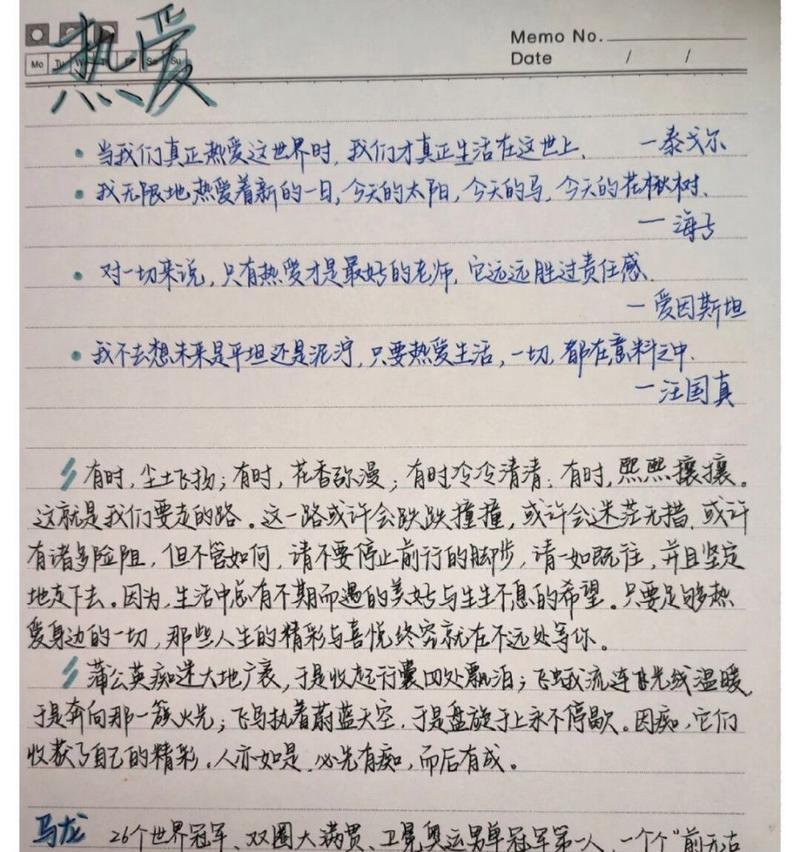 热爱
Memo No.
Mo Tu We Th Fr Sa Su
Date / /
当我们真正热爱这世界时，我们才真正生活在这世上．
—泰戈尔
我无限地热爱着新的一日，今天的太阳，今天的马，今天的花楸树．
—海子
对一切来说，只有热爱才是最好的老师，它远远胜过责任感．
—爱因斯坦
我不去想未来是平坦还是泥泞，只要热爱生活，一切，都在意料之中．
—汪国真
有时，尘土飞扬；有时，花香弥漫；有时冷冷清清；有时，熙熙攘攘。
这就是我们要走的路。这一路或许会跌跌撞撞，或许会迷茫无措，或许
有诸多险阻，但不管如何，请不要停止前行的脚步，请一如既往，并且坚定
地走下去。因为，生活中总有不期而遇的美好与生生不息的希望。只要足够热
爱身边的一切，那些人生的精彩与喜悦终究就在不远处等你。
蒲公英痴迷大地广袤，于是收起行囊四处飘泊；飞蛾流连光线温暖，
于是奔向那一簇火光；飞鸟执着蔚蓝天空，于是盘旋于上永不停歇。因痴，它们
收获了自己的精彩．人亦如是，必先有痴，而后有成。
马龙 26个世界冠军、双圈大满贯、卫冕奥运男单冠军第一人，一个个“前无古